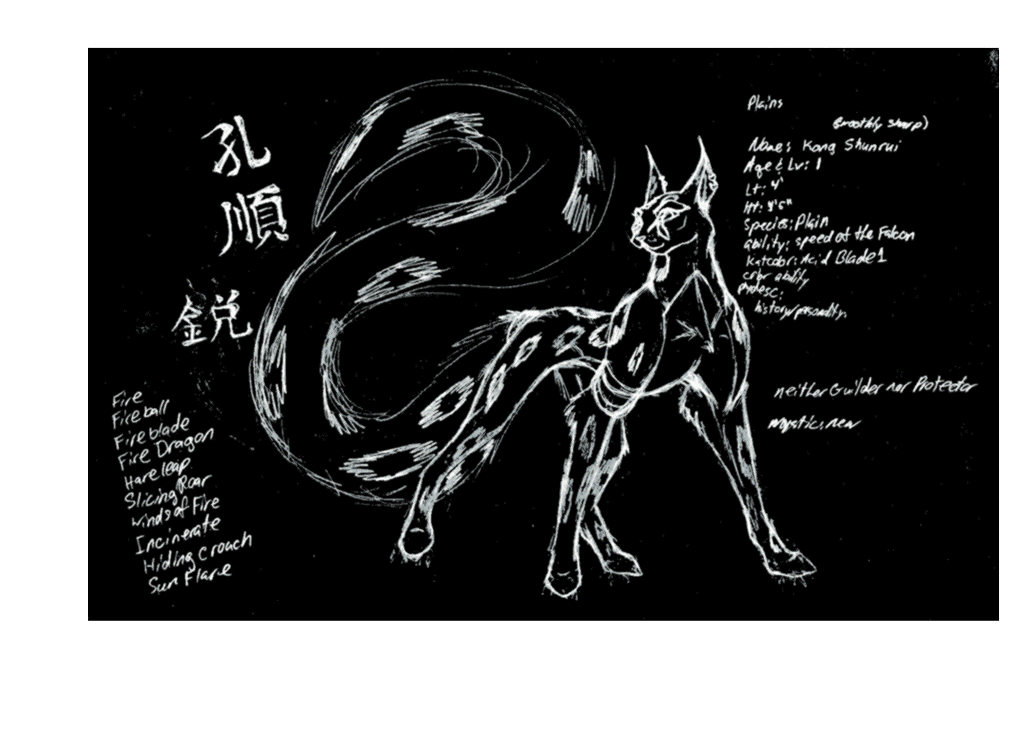 孔
順
鋭
Plains
(smoothly sharp)
Name: Kong Shunrui
Age & Lv: 1
Lt: 4'
Ht: 3'5"
Species: Plain
ability: speed of the Falcon
katcolor: Acid Blade 1
color ability
history/personality:
neither Guilder nor Protector
mystic, new
Fire
Fire ball
Fire blade
Fire Dragon
Hare leap
Slicing Roar
Winds of Fire
Incinerate
Hiding crouch
Sun Flare